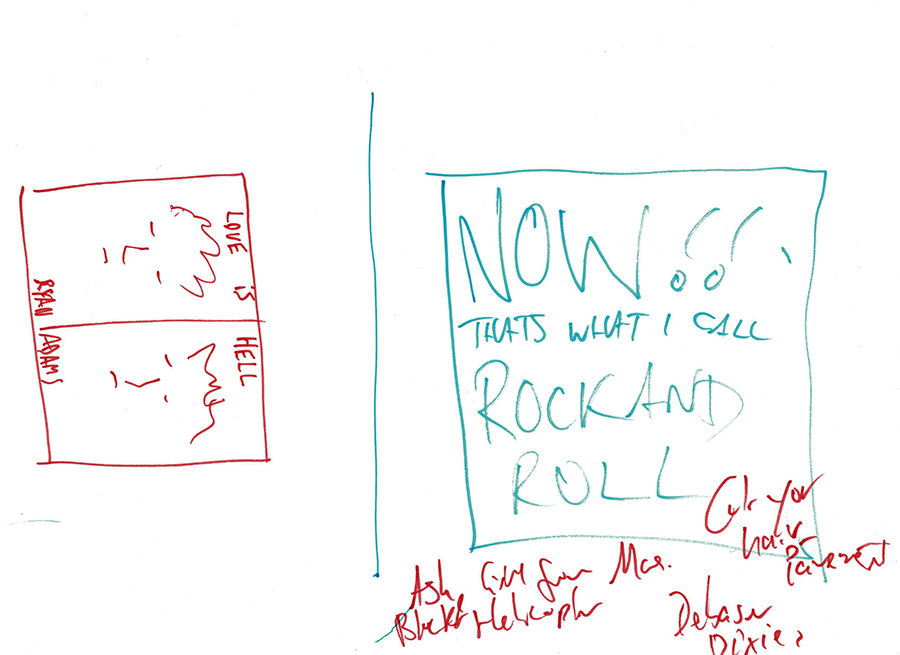 LOVE IS
HELL
RYAN ADAMS
NOW!!
THATS WHAT I CALL
ROCK AND
ROLL
Cut your
hair
Pavement
Ash Girl from Mars.
Helicopter
Debaser
Pixies